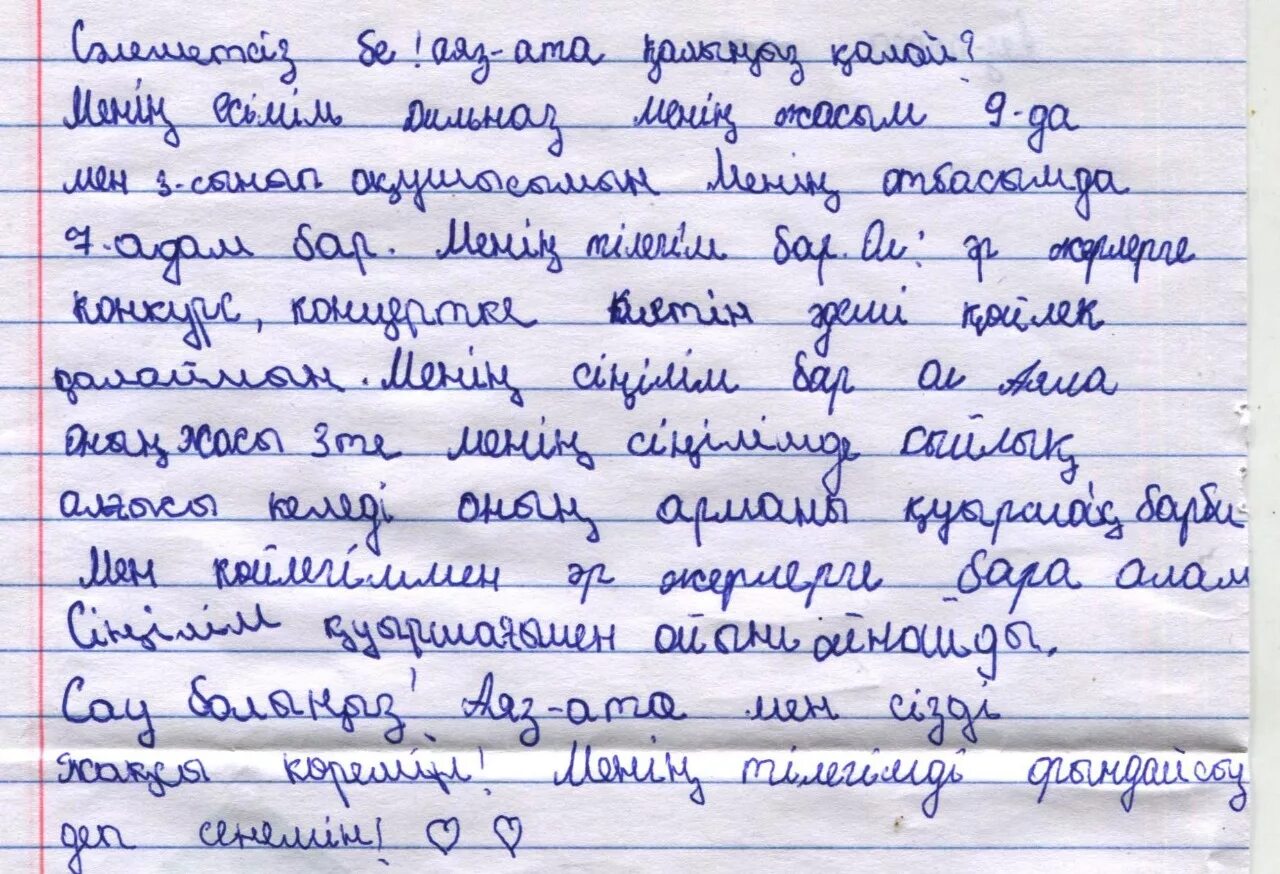 Сәлеметсіз бе! аяз-ата қалыңыз қалай?
Менің есімім Дильназ менің жасым 9-да
мен 3-сынып оқушысымын Менің отбасымда
7-адам бар. Менің тілегім бар. Ол: әр жерлерге
конкурс, концертке киетін әдемі көйлек
қалаймын. Менің сіңілім бар ол Аяла
оның жасы 3те менің сіңілімде сыйлық
алғысы келеді оның арманы қуыршақ барби
Мен көйлегіммен әр жерлерге бара алам
Сіңілім қуыршағымен ойын ойнайды.
Сау болыңыз! Аяз-ата мен сізді
жақсы көремін! Менің тілегімді орындайсың
деп сенемін! ♡ ♡